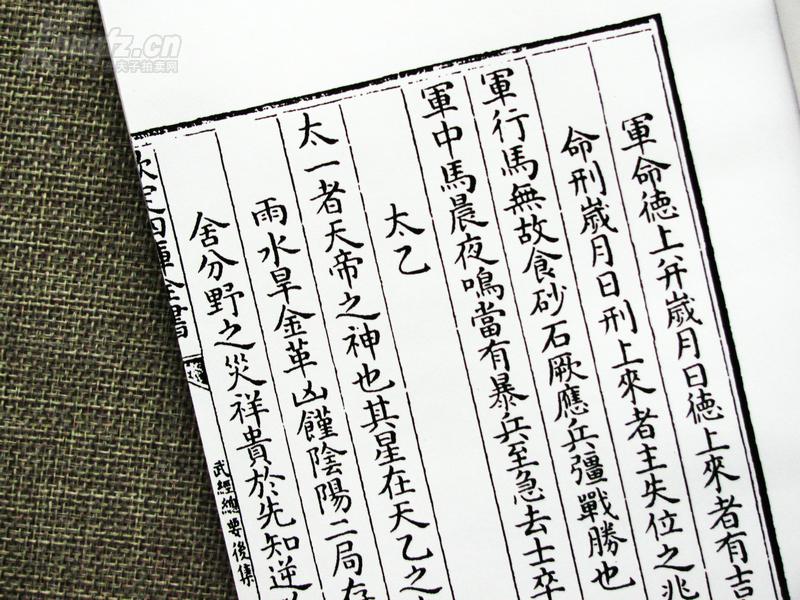 軍命德上并歲月日德上來者有吉
命刑歲月日刑上來者主失位之兆
軍行馬無故食砂石厥應兵彊戰勝也
軍中馬晨夜鳴當有暴兵至急去士卒
太乙
太一者天帝之神也其星在天乙之
雨水旱金革凶饉陰陽二局存
舍分野之災祥貴於先知逆
欽定四庫全書
武經總要後集
.cn
夫子拍卖网